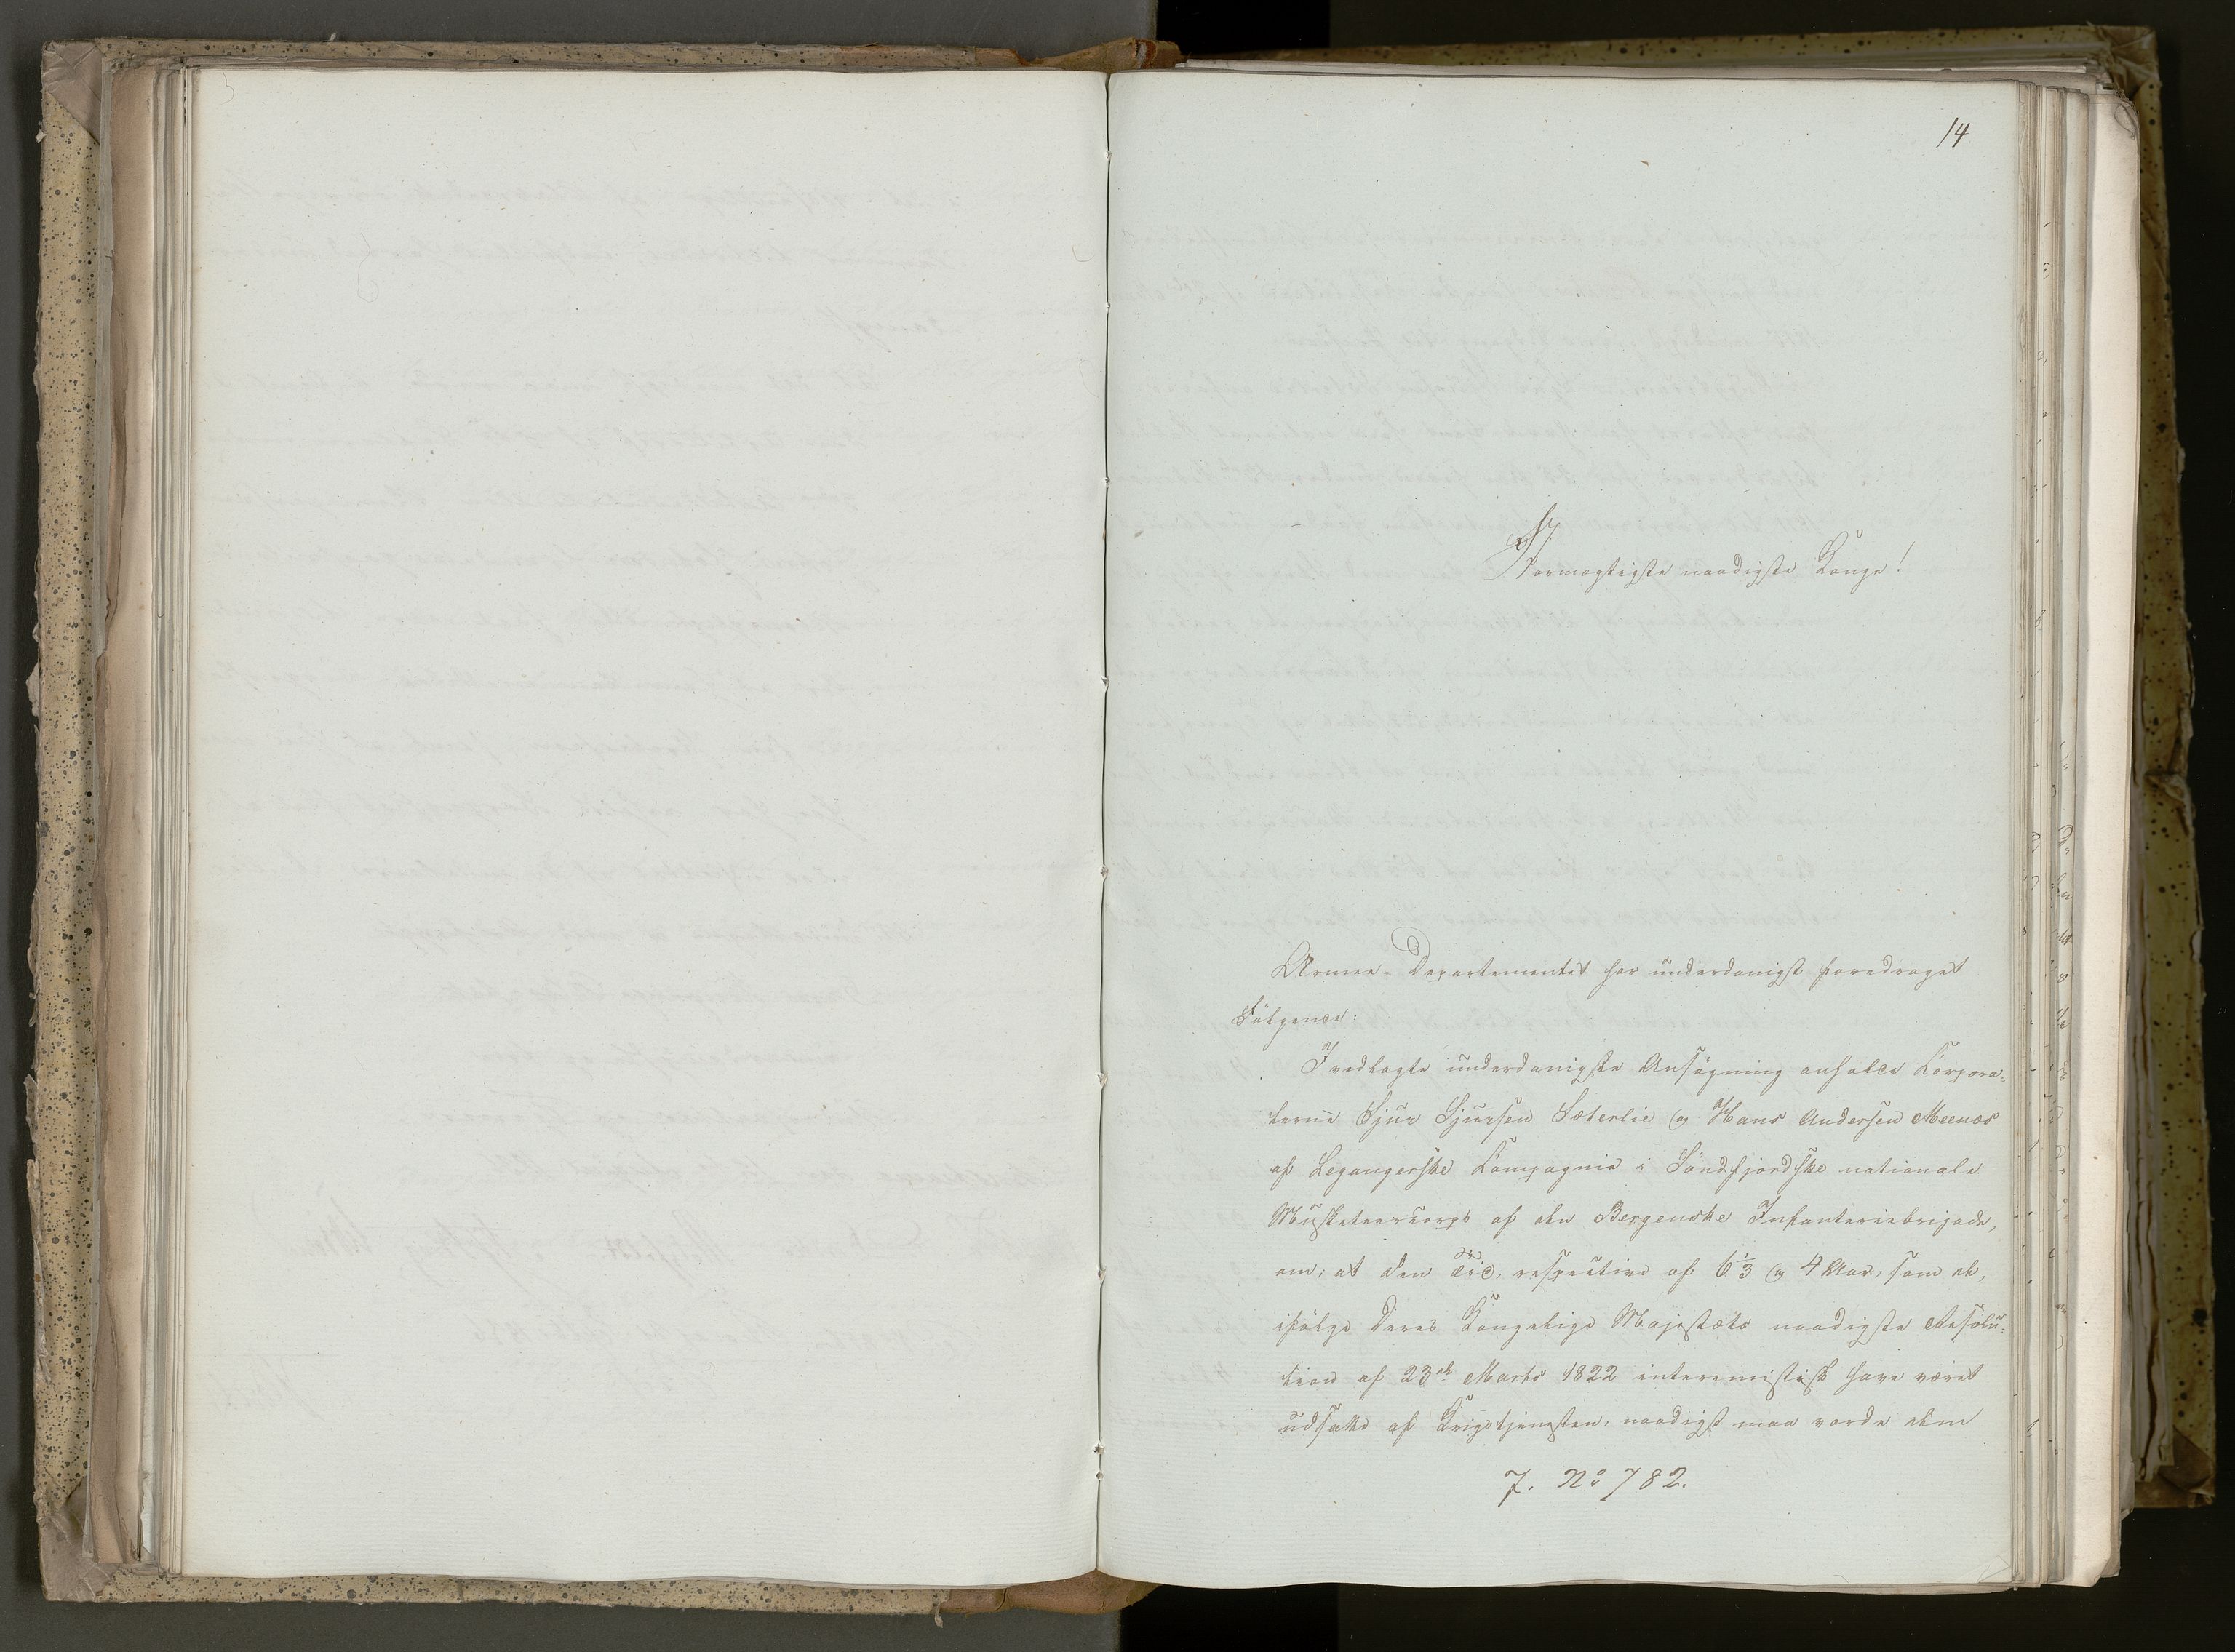 14
Stormægtigste naadigste Konge!
Armee-Departementet har underdanigst foredraget
Følgende:
I vedlagte underdanigste Ansøgning anholde Corpora-
lerne Sjur Sjursen Sæterlie og Hans Andersen Meenæs
af Leganger​ske Compagnie i Søndfjordske nationale
Musketeercorps af den Bergenske Infanteriebrigade,
om, at den Tid, respective af 6⅓ og 4 Aar, som de,
ifølge Deres Kongelige Majestæts naadigste Resolu-
tion af 23de Marts 1822 interemistisk have været
udsatte af Krigstjenesten, naadigst maa vorde dem
7. No 782.